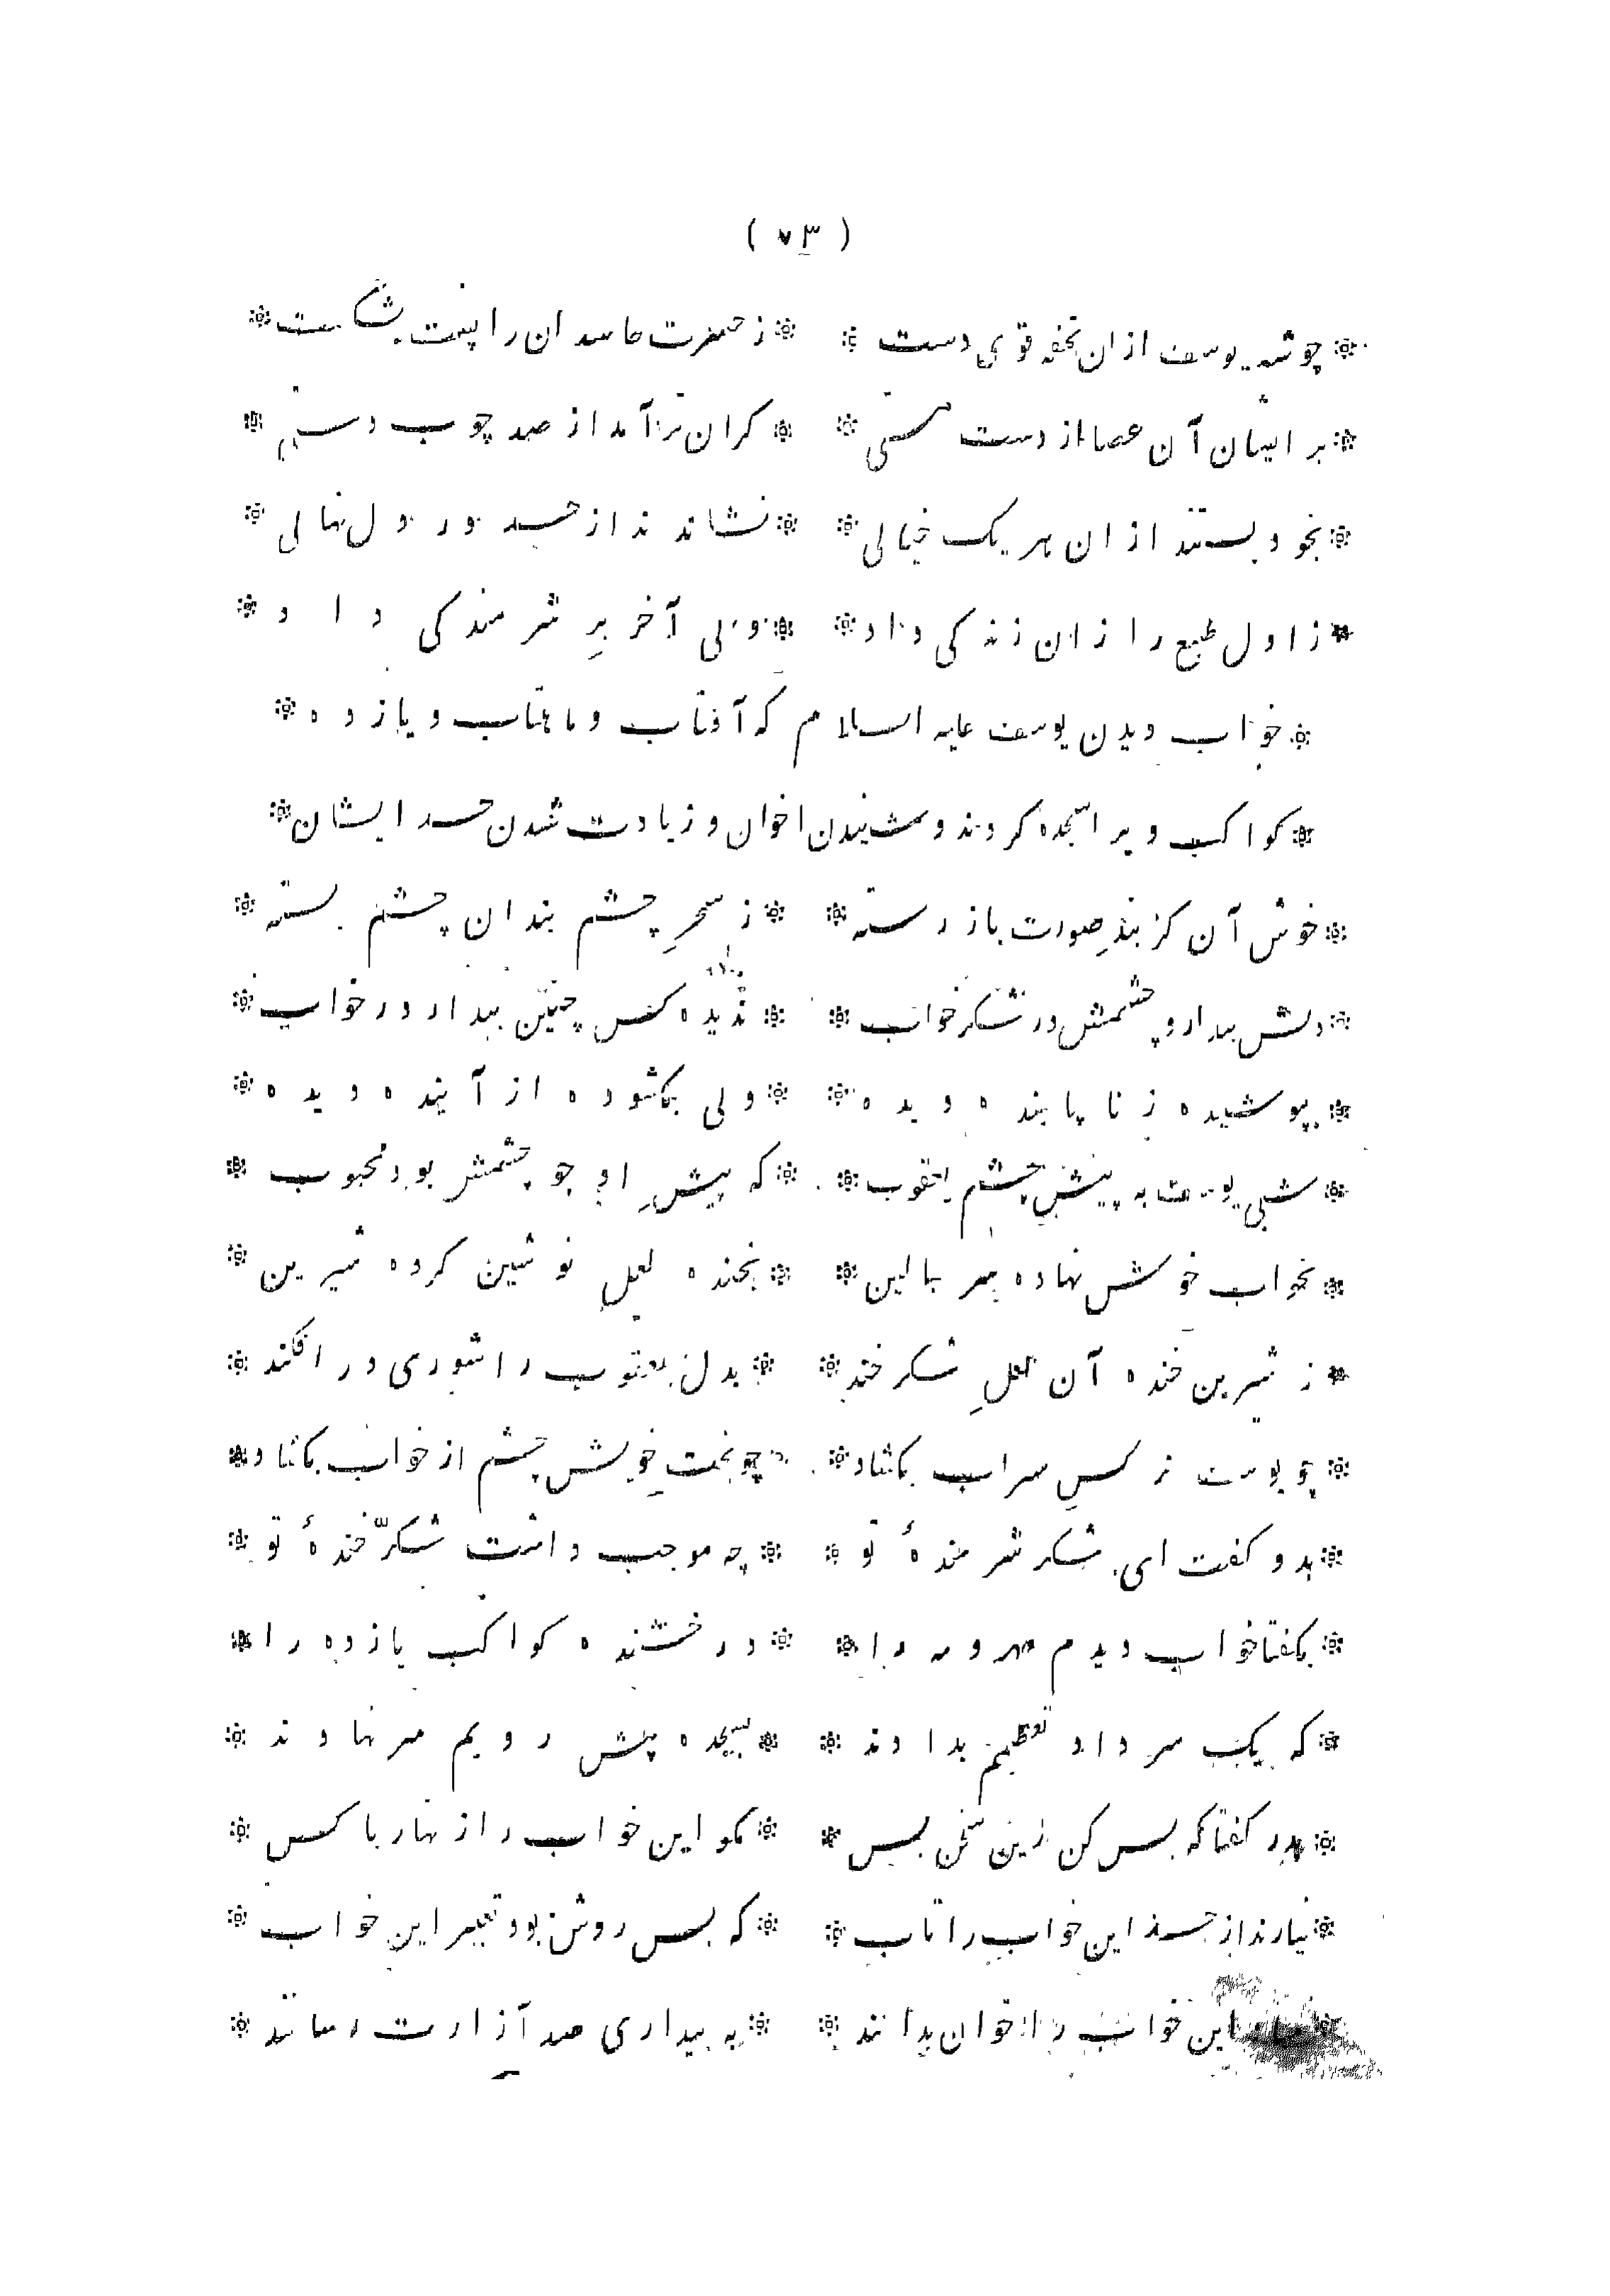 ( ۷۳ )
چو شد یوسف از ان تحفه قوی دست * ز حسرت حاسدان را پشت بشکست
بر ایشان آن عصا از دست * گران تر آمد از صد چوب دستی
بخود بستند از ان هر یک خیالی * نشاندند از حسد در دل نهالی
ز اول طبع را زان زندکی داد * ولی آخر بر شرمندکی داد
خواب دیدن یوسف علیه السلام که آفتاب و ماهتاب و یازده
کواکب ویرا سجده کردند و شنیدن اخوان و زیادت شدن حسد ایشان
خوش آن کز بند صورت باز رسته * ز سحر چشم بندان چشم بسته
دلش بیدار و چشمش در شکر خواب * ندیده کس چنین بیدار در خواب
بپوشیده ز ناپاینده دیده * ولی بکشوده از آینده دیده
شبی یوسف به پیش چشم یعقوب * که پیش او چو چشمش بود محبوب
بخواب خوش نهاده سر ببالین * بخنده لعل نوشین کرده شیرین
ز شیرین خنده آن لعل شکر خند * بدل یعقوب را شوری در افکند
چو یوسف نرکس سیراب بکشاد * چو بخت خویش چشم از خواب بکشاد
بدو کفت ای شکر شرمندهٔ تو * چه موجب داشت شکّر خندهٔ تو
بکفتا خواب دیدم مهر و مه را * درخشنده کواکب یازده را
که یک سر داد تعظیم بدادند * بسجده پیش رویم سر نهادند
پدر کفتا که بس کن زین سخن بس * مکو این خواب را زنهار با کس
نیارند از حسد این خواب را تاب * که بس روشن بود تعبیر این خواب
این خواب را اخوان بدانند * به بیداری صد آزارت رسانند